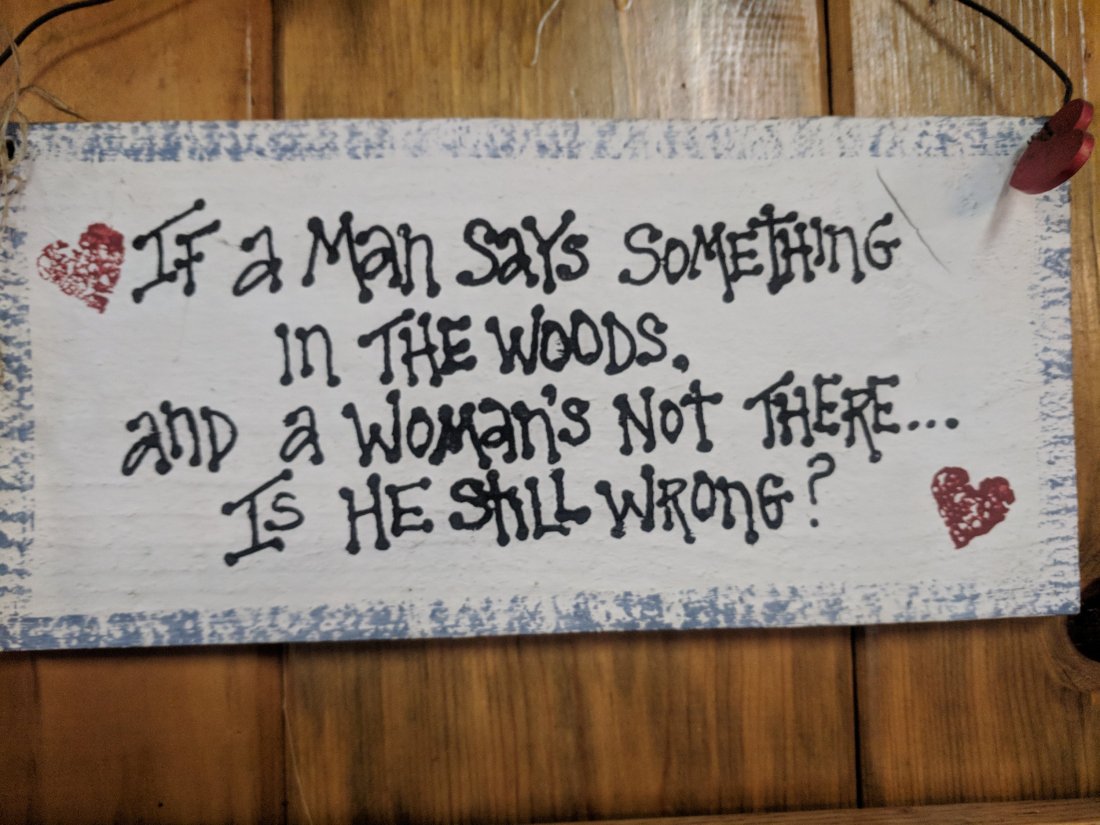 If a Man says SOMETHING
in THE WOODS,
and a Woman's Not THERE...
Is HE StiLL WRONG?